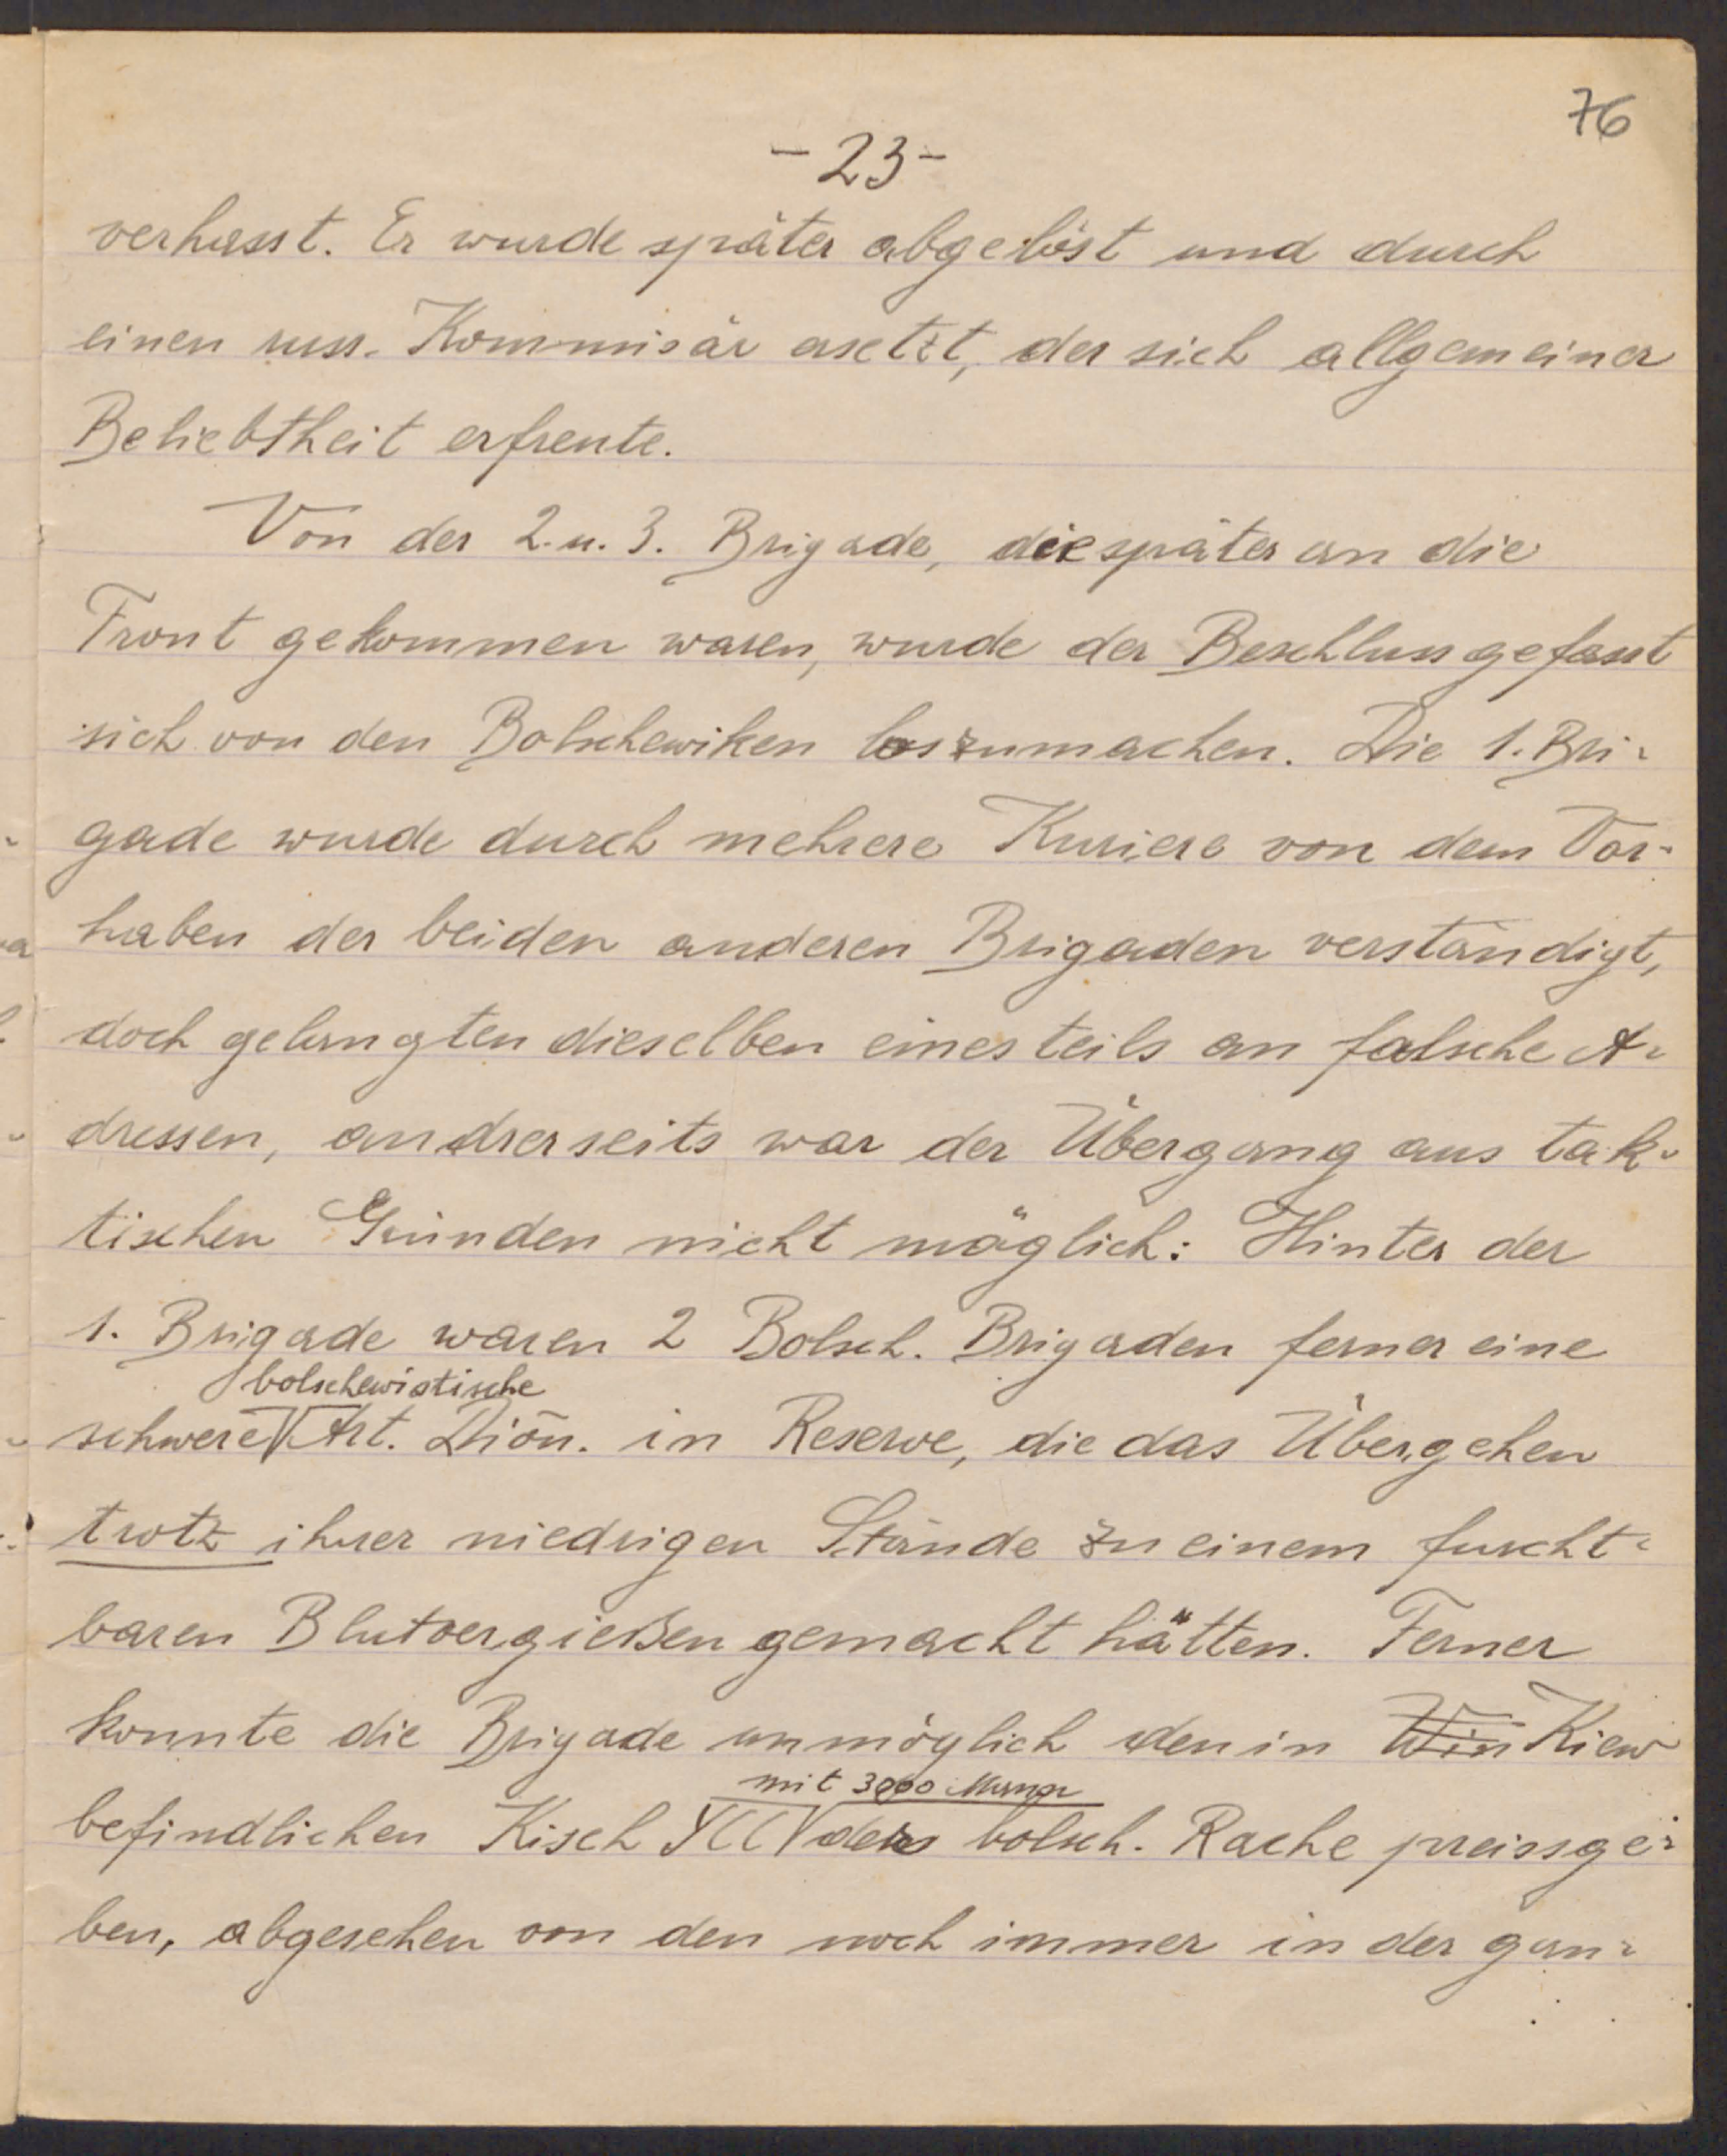 76
- 23 -
verhasst. Er wurde später abgelöst und durch
einen russ. Kommisär ersetzt, der sich allgemeiner
Beliebtheit erfreute.
Von der 2. u. 3. Brigade, die später an die
Front gekommen waren, wurde der Beschluss gefasst
sich von den Bolschewiken loszumachen. Die 1. Bri-
gade wurde durch mehrere Kuriere von dem Vor-
haben der beiden anderen Brigaden verständigt,
doch gelangten dieselben einesteils an falsche A-
dressen, andrerseits war der Übergang aus tak-
tischen Gründen nicht möglich: Hinter der
1. Brigade waren 2 Bolsch. Brigaden ferner eine
bolschewistische
schwere Art. Dion. in Reserve, die das Übergehen
trotz ihrer niedrigen Stände zu einem furcht-
baren Blutvergießen gemacht hätten. Ferner
konnte die Brigade unmöglich den in Win Kiew
mit 3000 Mann
befindlichen Kisch YCC der bolsch. Rache preissge-
ben, abgesehen von den noch immer in der gan-